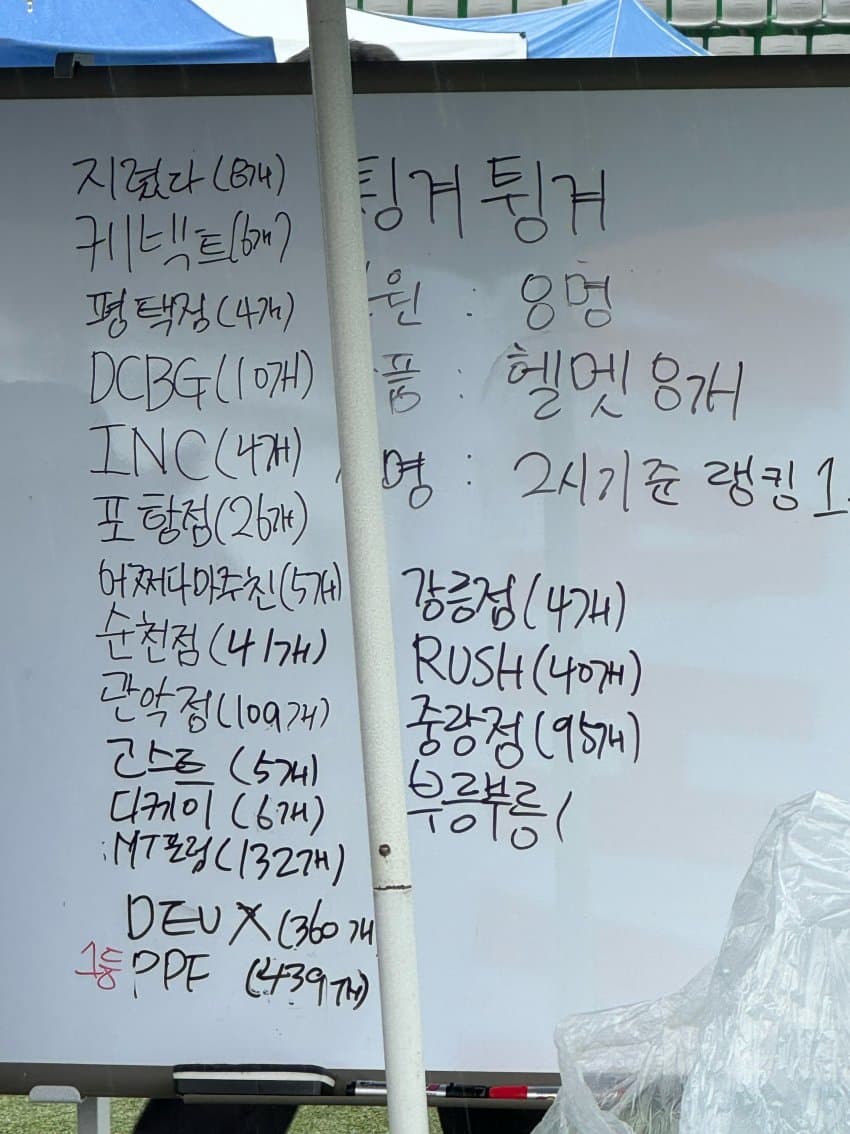 지렸다 (8개)
케이넥트 (6개)
평택점 (4개)
DCBG (10개)
INC (4개)
포항점 (26개)
어쩌다마주친 (5개)
순천점 (41개)
관악점 (109개)
고스트 (5개)
디케이 (6개)
MT포럼 (132개)
DEUX (360개
1등 PPF (439개)
팅겨 튕겨
원 : 8명
품 : 헬멧 8개
명 : 2시기준 랭킹 1
강릉점 (4개)
RUSH (40개)
중랑점 (95개)
부릉부릉 (